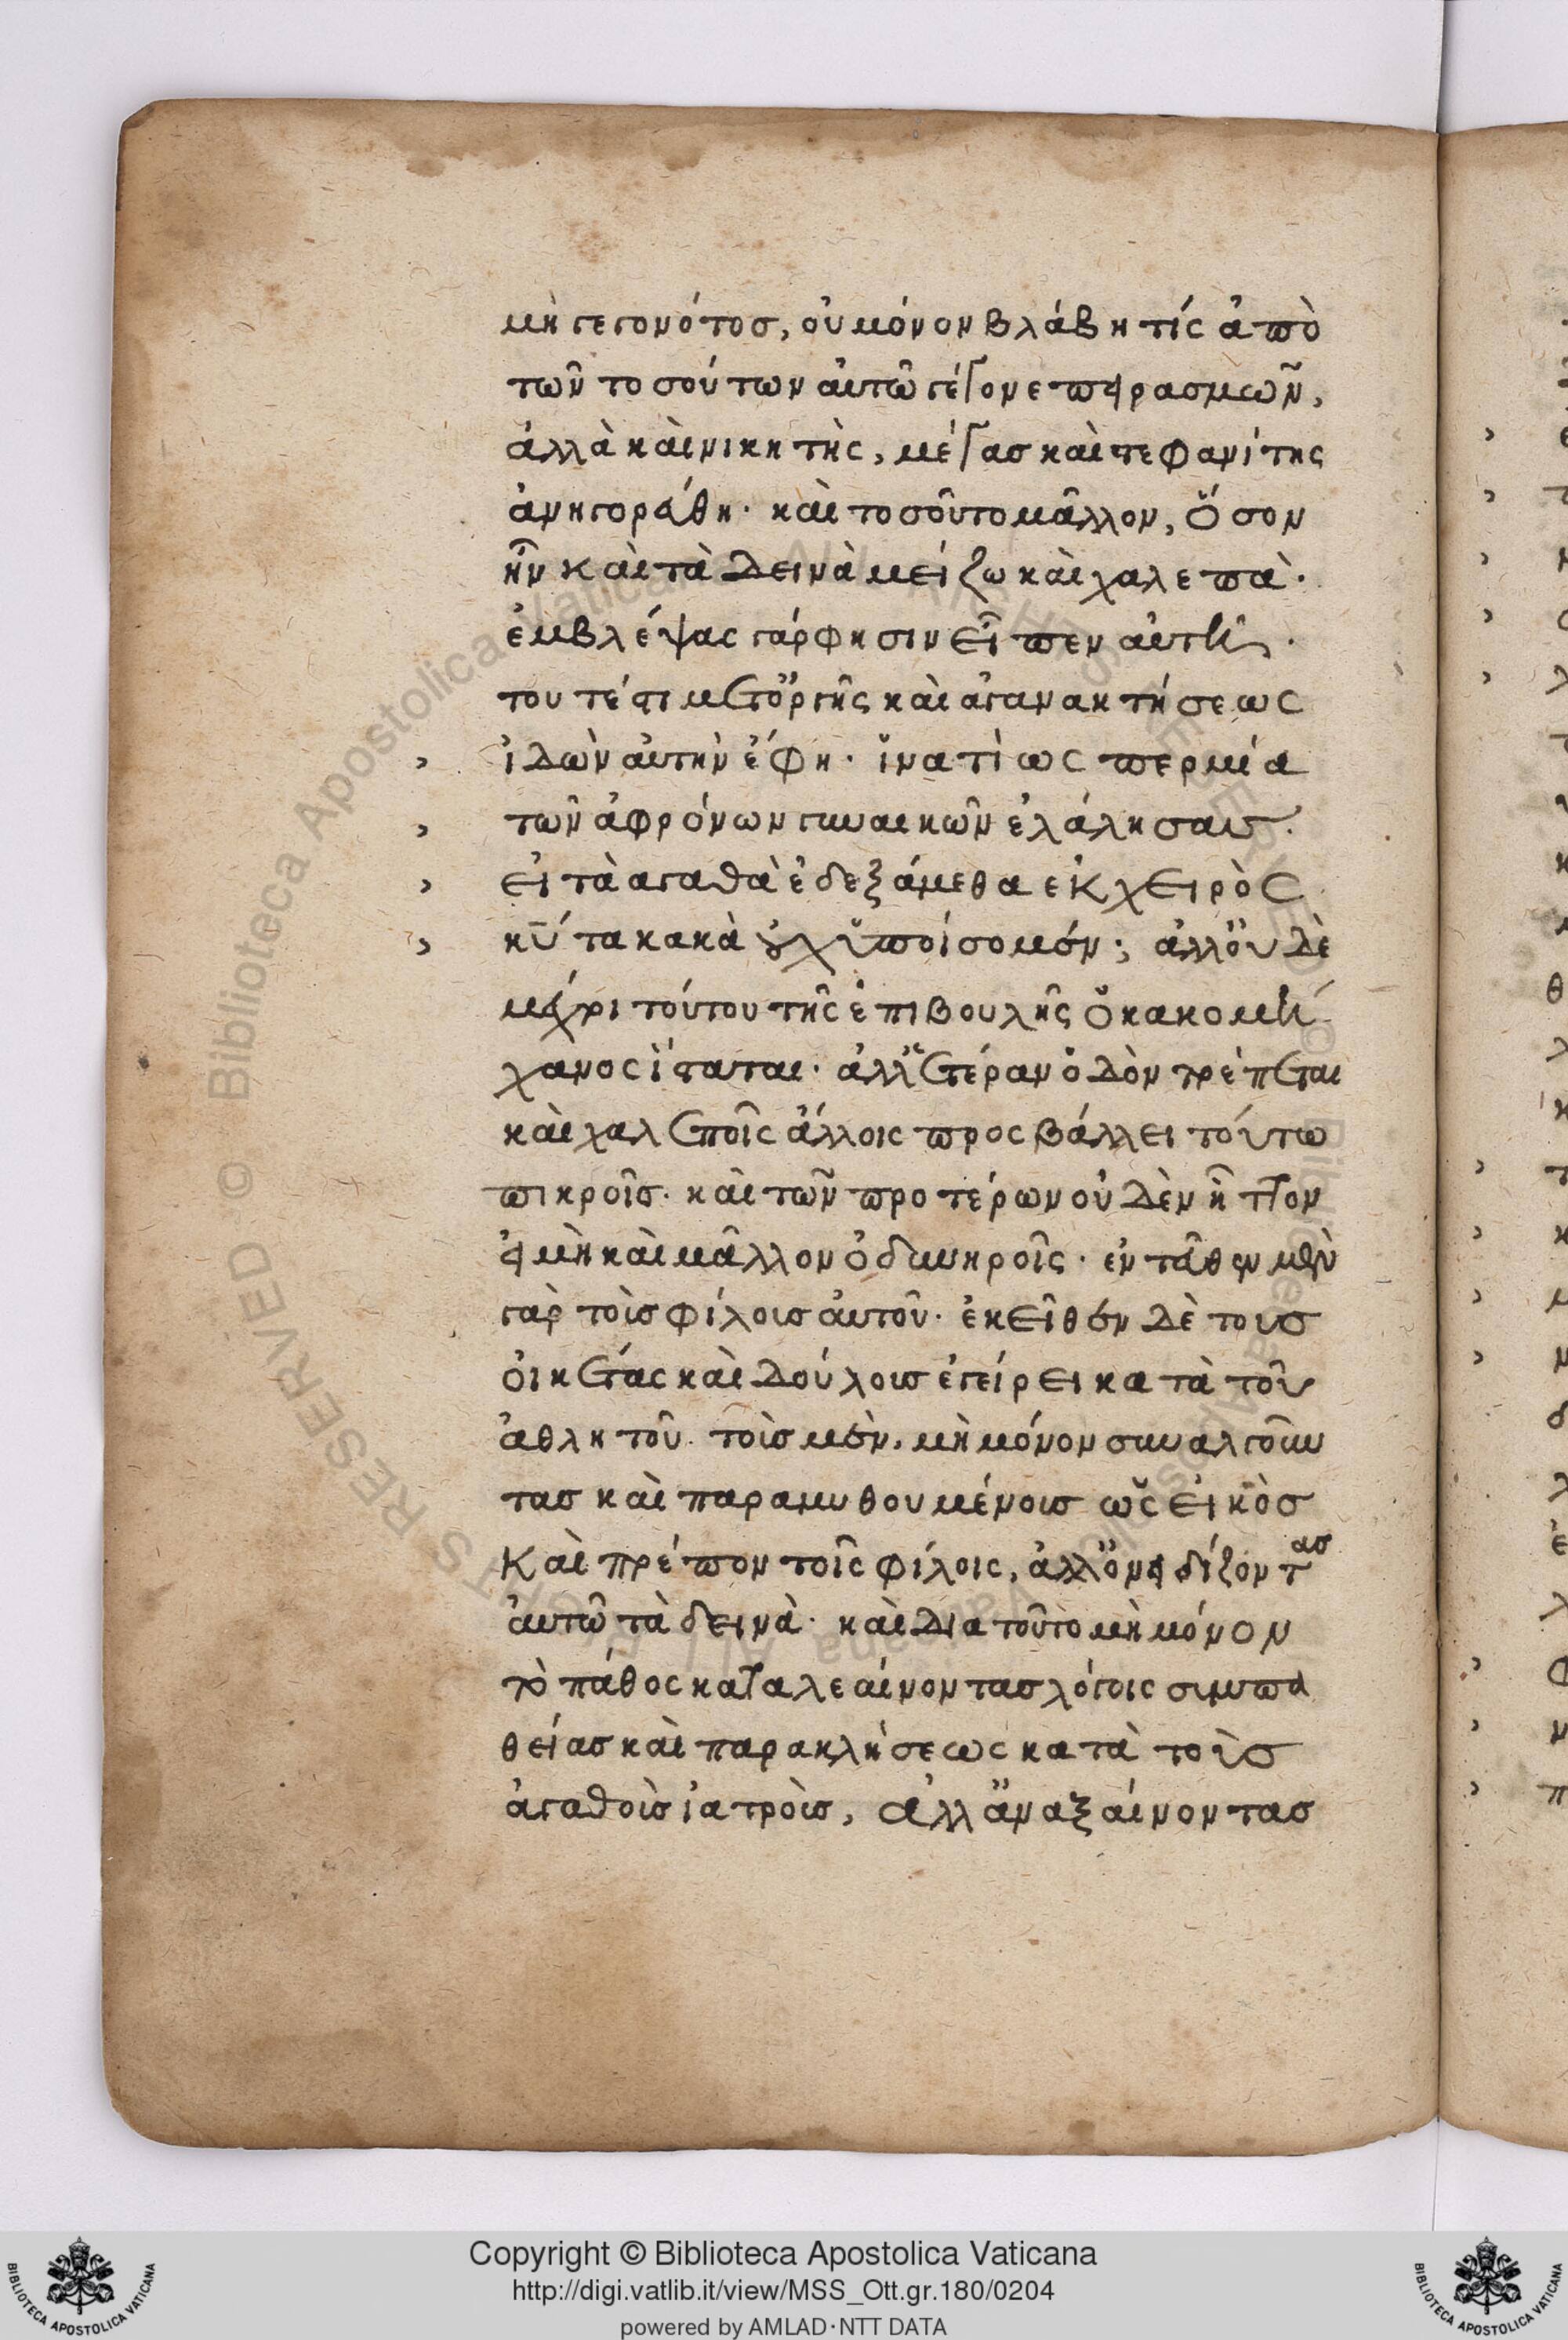 μὴ γεγονότος, οὐ μόνον βλάβη τίς ἀπὸ
τῶν τοσούτων αὐτῶ γέγονε πειρασμῶν,
ἀλλὰ καὶ νικητὴς, μέγας καὶ στεφανίτης
ἀνηγορεύθη· καὶ τοσοῦτο μᾶλλον, ὅσον
ἦν καὶ τὰ δεινὰ μείζω καὶ χαλεπὰ·
ἐμβλέψας γάρ φησιν εἶπεν αὐτῆ·
τουτέστι μετ' ὀργῆς καὶ ἀγανακτήσεως
› ἰδὼν αὐτὴν ἔφη· ἵνα τί ὡς περ μία
› τῶν ἀφρόνων γυναικῶν ἐλάλησας·
› εἰ τὰ ἀγαθὰ ἐδεξάμεθα ἐκ χειρὸς
› κυ τα κακὰ οὐχ ὑποίσομεν; ἀλλ' οὐδὲ
μέχρι τούτου τῆς ἐπιβουλῆς ὁ κακομή
χανος ἵσταται· ἀλλ' ἑτέραν ὁδὸν τρέπεται
καὶ χαλεποῖς ἄλλοις προσβάλλει τούτω
πικροῖς· καὶ τῶν προτέρων οὐδὲν ἧττον
εἰ μὴ καὶ μᾶλλον ὀδυνηροῖς· ἐνταῦθεν μὲν
γὰρ τοὺς φίλους αὐτοῦ· ἐκεῖθεν δὲ τους
οἰκέτας καὶ δούλους ἐγείρει κατὰ τοῦ
ἀθλητοῦ· τοὺς μὲν, μὴ μόνον συναλγοῦν
τας καὶ παραμυθουμένους ὡς εἰκὸς
καὶ πρέπον τοῖς φίλοις, ἀλλ' ὀνειδίζοντας
αὐτῶ τὰ δεινὰ· καὶ δια τοῦτο μὴ μόνον
τὸ πάθος καταλεαίνοντας λόγοις συμπα
θείας καὶ παρακλήσεως κατὰ τοὺς
ἀγαθοὺς ἰατροὺς, ἀλλ' ἀναξαίνοντας
Copyright © Biblioteca Apostolica Vaticana
http://digi.vatlib.it/view/MSS_Ott.gr.180/0204
powered by AMLAD·NTT DATA
BIBLIOTECA APOSTOLICA VATICANA
BIBLIOTECA APOSTOLICA VATICANA